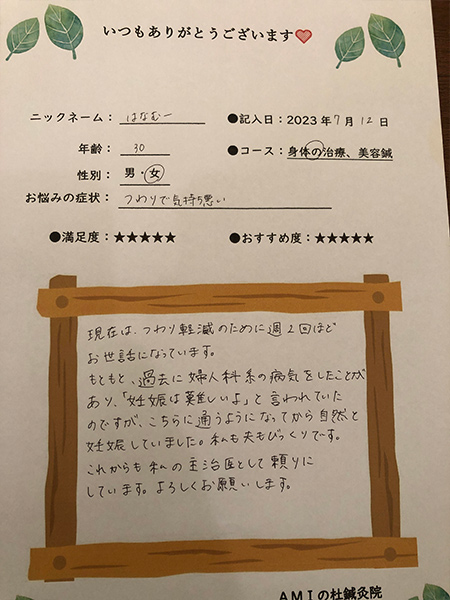 いつもありがとうございます
ニックネーム： はなむー ●記入日：2023年7月12日
年齢： 30 ●コース：身体の治療、美容鍼
性別： 男・女
お悩みの症状： つわりで気持ち悪い
●満足度：★★★★★ ●おすすめ度：★★★★★
現在は、つわり軽減のために週2回ほど
お世話になっています。
もともと、過去に婦人科系の病気をしたことが
あり、「妊娠は難しいよ」と言われていた
のですが、こちらに通うようになってから自然と
妊娠していました。私も夫もびっくりです。
これからも私の主治医として頼りに
しています。よろしくお願いします。
ＡＭＩの杜鍼灸院